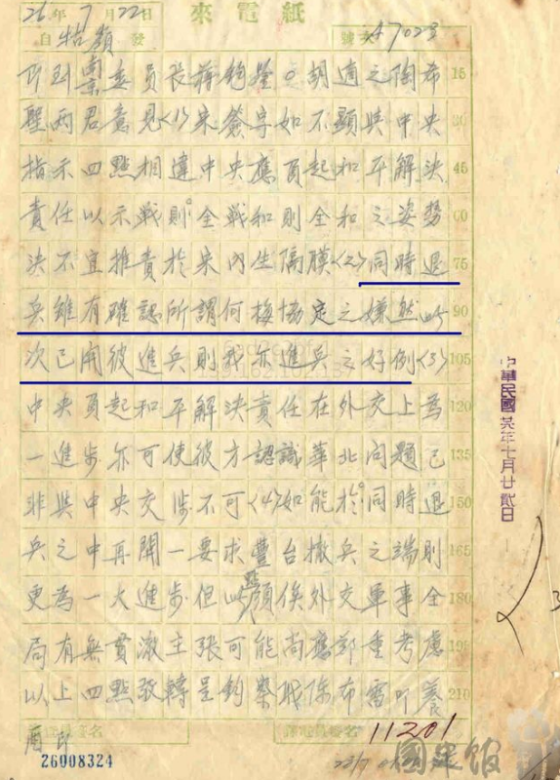 來電紙
26年7月22日
自牯嶺發
號次47023
即到南京委員長蔣鈞鑒。胡適之陶希
聖兩君意見<1>宋簽字如不顯與中央
指示四點相違中央應負起和平解決
責任以示戰則全戰和則全和之姿勢
決不宜推責於宋內生隔膜<2>同時退
兵雖有確認所謂何梅協定之嫌然此
次已開彼進兵則我亦進兵之好例<3>
中央負起和平解決責任在外交上為
一進步亦可使彼方認識華北問題已
非與中央交涉不可<4>如能於同時退
兵之中再開一要求豐台撤兵之端則
更為一大進步但此點顧俟外交軍事全
局有無貫澈主張可能尚應鄭重考慮
以上四點敬轉呈鈞察職陳布雷叩養
印
11201
26008324
15
30
45
60
75
90
105
120
135
150
165
180
195
210
中華民國廿六年十月廿貳日
國史館